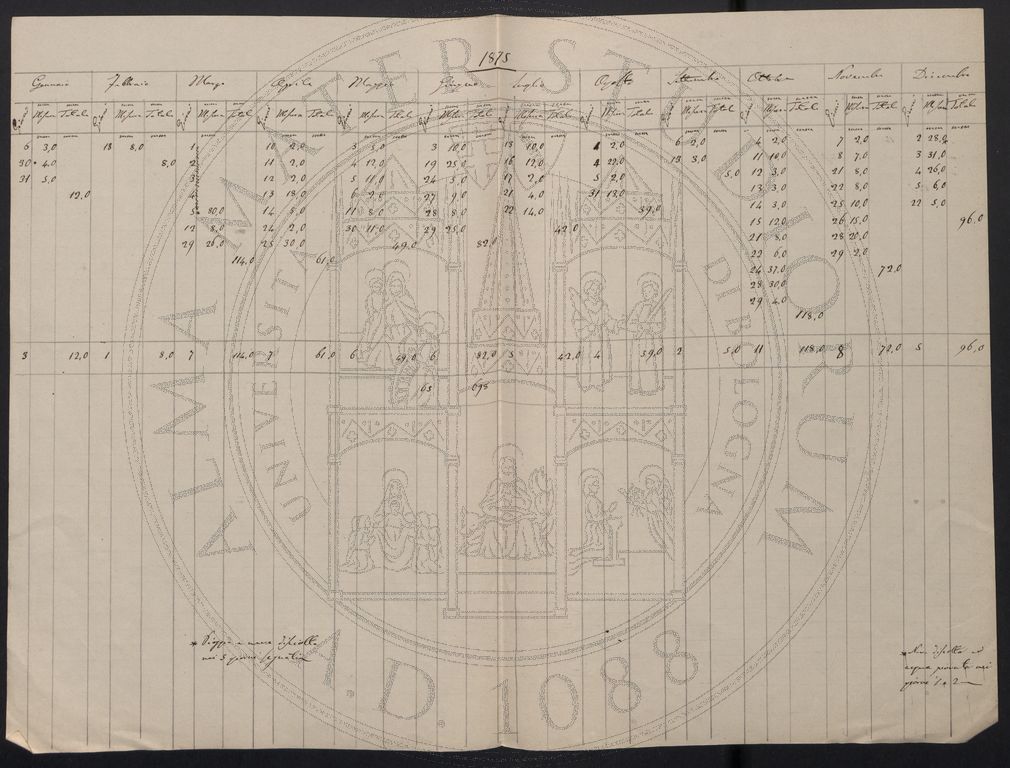 1875
Gennaio Febbraio Marzo Aprile Maggio Giugno Luglio Agosto Settembre Ottobre Novembre Dicembre
Misura Totale Misura Totale Misura Totale Misura Totale Misura Totale Misura Totale Misura Totale Misura Totale Misura Totale Misura Totale Misura Totale Misura Totale
6 3,0 13 8,0 1 10 2,0 3 5,0 3 10,0 13 10,0 1 2,0 6 2,0 4 2,0 7 2,0 2 28,0
30 4,0 8,0 2 11 2,0 4 12,0 19 25,0 16 12,0 4 22,0 13 3,0 11 10,0 8 7,0 3 31,0
31 5,0 3 12 2,0 5 11,0 24 5,0 17 2,0 5 2,0 5,0 12 3,0 21 8,0 4 26,0
12,0 4 13 18,0 6 2,0 27 9,0 21 4,0 31 13,0 13 3,0 22 8,0 5 6,0
5 80,0 14 5,0 11 8,0 28 8,0 22 14,0 39,0 14 3,0 25 10,0 22 5,0
12 8,0 24 2,0 30 11,0 29 25,0 42,0 15 12,0 26 15,0 96,0
29 26,0 25 30,0 49,0 82,0 21 8,0 28 20,0
114,0 61,0 22 6,0 29 2,0
24 37,0 72,0
28 30,0
29 4,0
118,0
3 12,0 1 8,0 7 114,0 7 61,0 6 49,0 6 82,0 5 42,0 4 39,0 2 5,0 11 118,0 8 72,0 5 96,0
65 698
* Pioggia e neve disciolta
nei 5 giorni
* Neve disciolta ed
acqua piovuta nei
giorni 1 e 2
ALMA MATER STUDIORUM
UNIVERSITÀ DI BOLOGNA
A.D. 1088